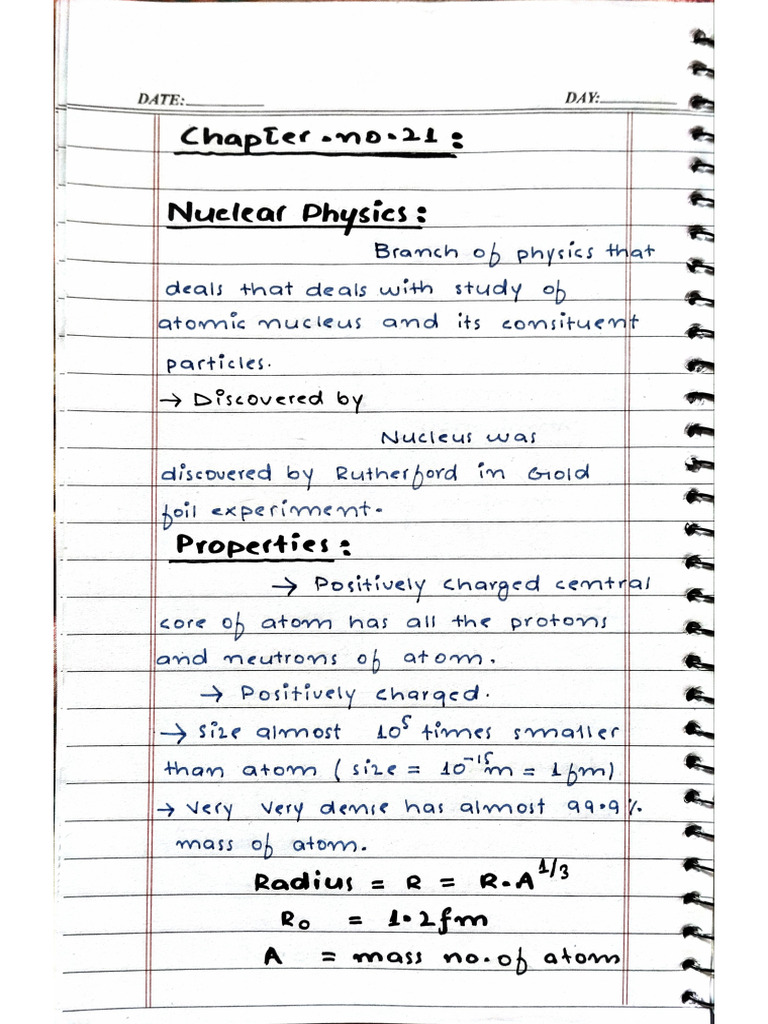 DATE:
DAY:
Chapter.no.21:
Nuclear Physics:
Branch of physics that
deals that deals with study of
atomic nucleus and its consituent
particles.
→ Discovered by
Nucleus was
discovered by Rutherford in Gold
foil experiment.
Properties:
→ Positively charged central
core of atom has all the protons
and neutrons of atom.
→ Positively charged.
→ size almost 10⁵ times smaller
than atom (size = 10⁻¹⁵m = 1fm)
→ very very dense has almost 99.9%
mass of atom.
Radius = R = R.A^1/3
R₀ = 1.2fm
A = mass no. of atom